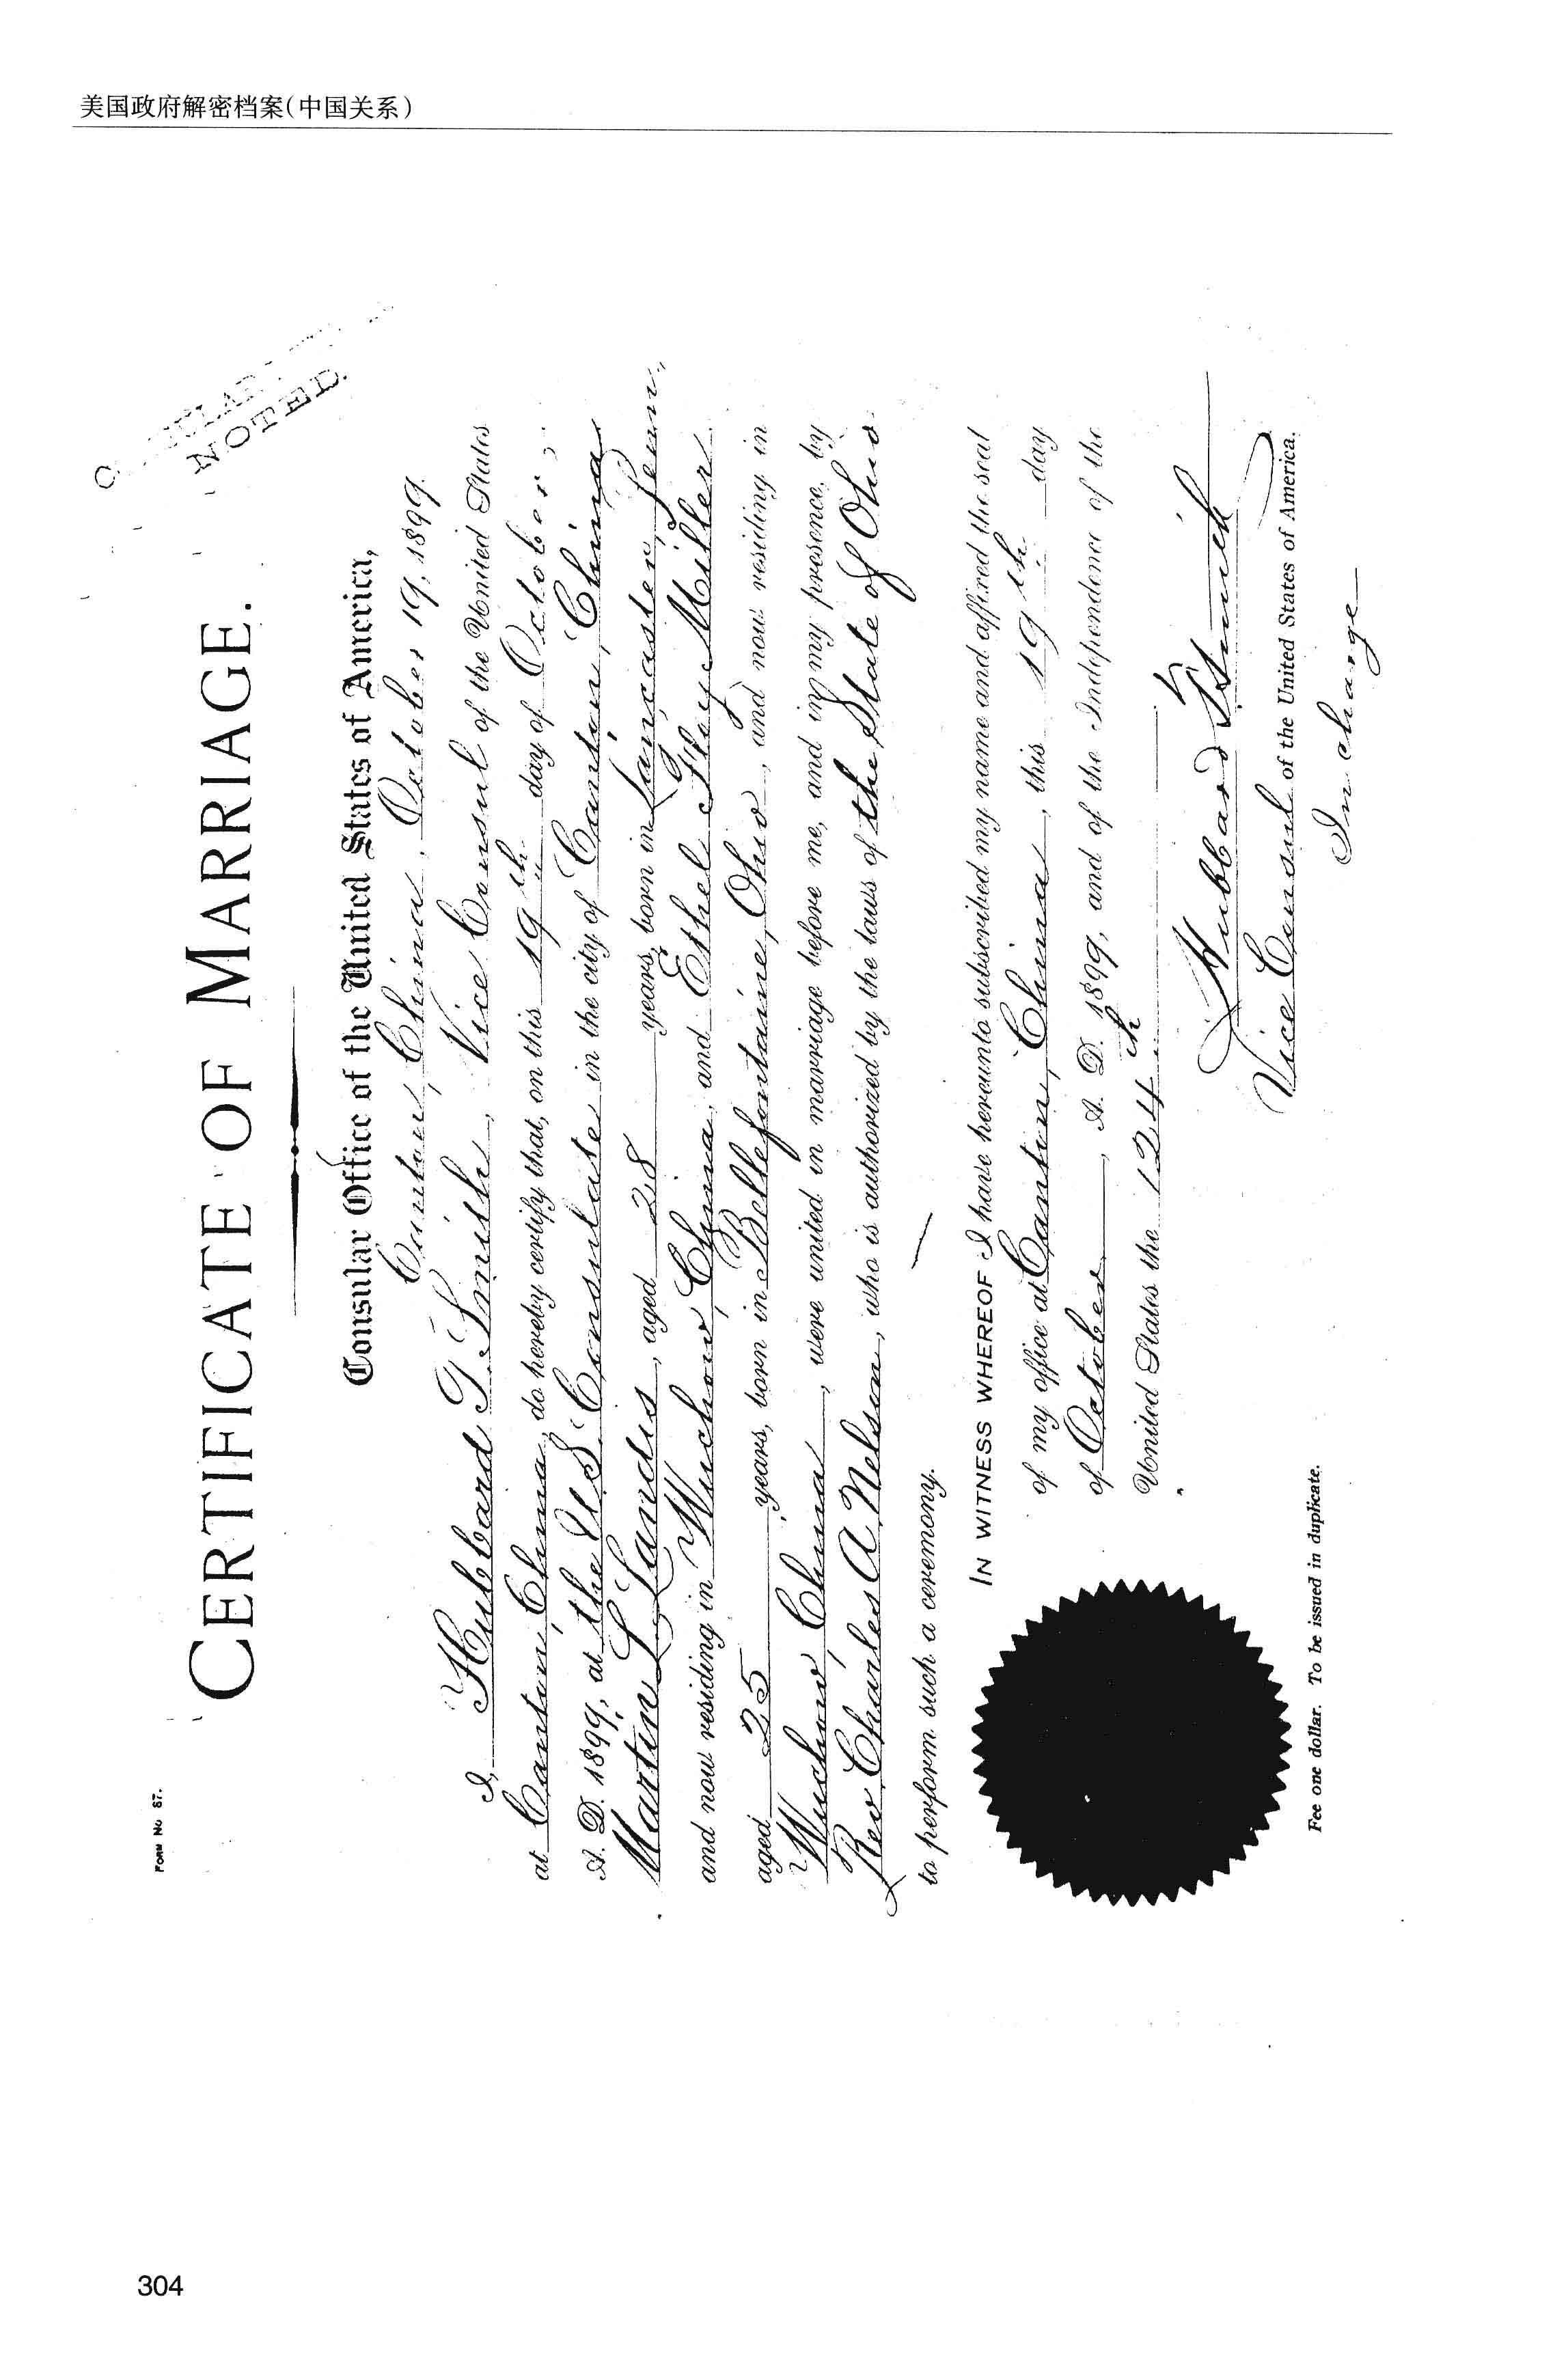 美国政府解密档案(中国关系)
FORM No 87.
NOTED.
CERTIFICATE OF MARRIAGE.
Consular Office of the United States of America,
Canton, China, October 19, 1899.
I, Hubbard T. Smith, Vice Consul of the United States
at Canton, China, do hereby certify that, on this 19th day of October,
A. D. 1899, at the U.S. Consulate in the city of Canton, China
Martin L Landis, aged 28 years, born in Lancaster, Penn,
and now residing in Wuchow, China, and Ethel Floy Miller
aged 25 years, born in Bellefontaine, Ohio, and now residing in
Wuchow China, were united in marriage before me, and in my presence, by
Rev Charles A Nelson, who is authorized by the laws of the State of Ohio
to perform such a ceremony.
IN WITNESS WHEREOF I have hereunto subscribed my name and affixed the seal
of my office at Canton, China, this 19th day
of October, A. D. 1899, and of the Independence of the
United States the 124th
Hubbard T. Smith
Vice Consul of the United States of America.
In charge
Fee one dollar. To be issued in duplicate.
304